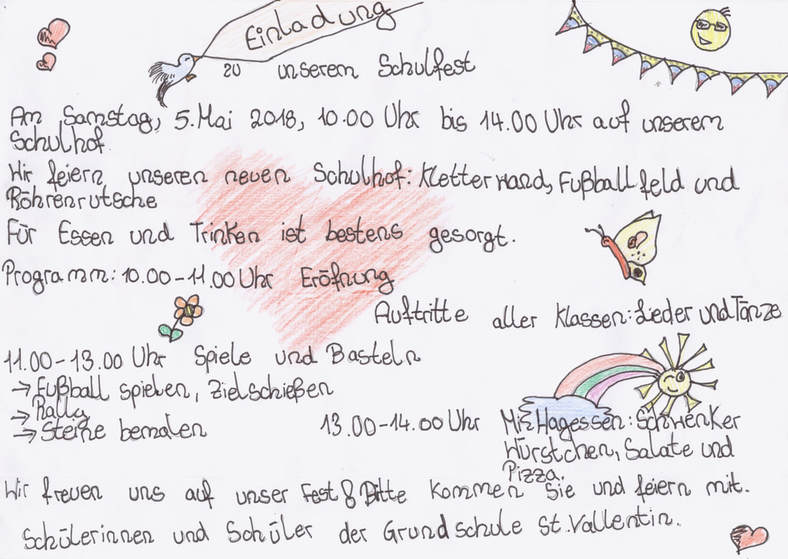 Einladung
zu unserem Schulfest
Am Samstag, 5. Mai 2018, 10.00 Uhr bis 14.00 Uhr auf unserem
Schulhof
Wir feiern unseren neuen Schulhof: Kletterwand, Fußballfeld und
Röhrenrutsche
Für Essen und Trinken ist bestens gesorgt.
Programm: 10.00-11.00 Uhr Eröfnung
Auftritte aller Klassen: Lieder und Tänze
11.00-13.00 Uhr Spiele und Basteln
→ Fußball spielen, Zielschießen
→ Rally
→ Steine bemalen
13.00-14.00 Uhr Mittagessen: Schwenker
Würstchen, Salate und
Pizza.
Wir freuen uns auf unser Fest! Bitte kommen Sie und feiern mit.
Schülerinnen und Schüler der Grundschule St. Vallentin.